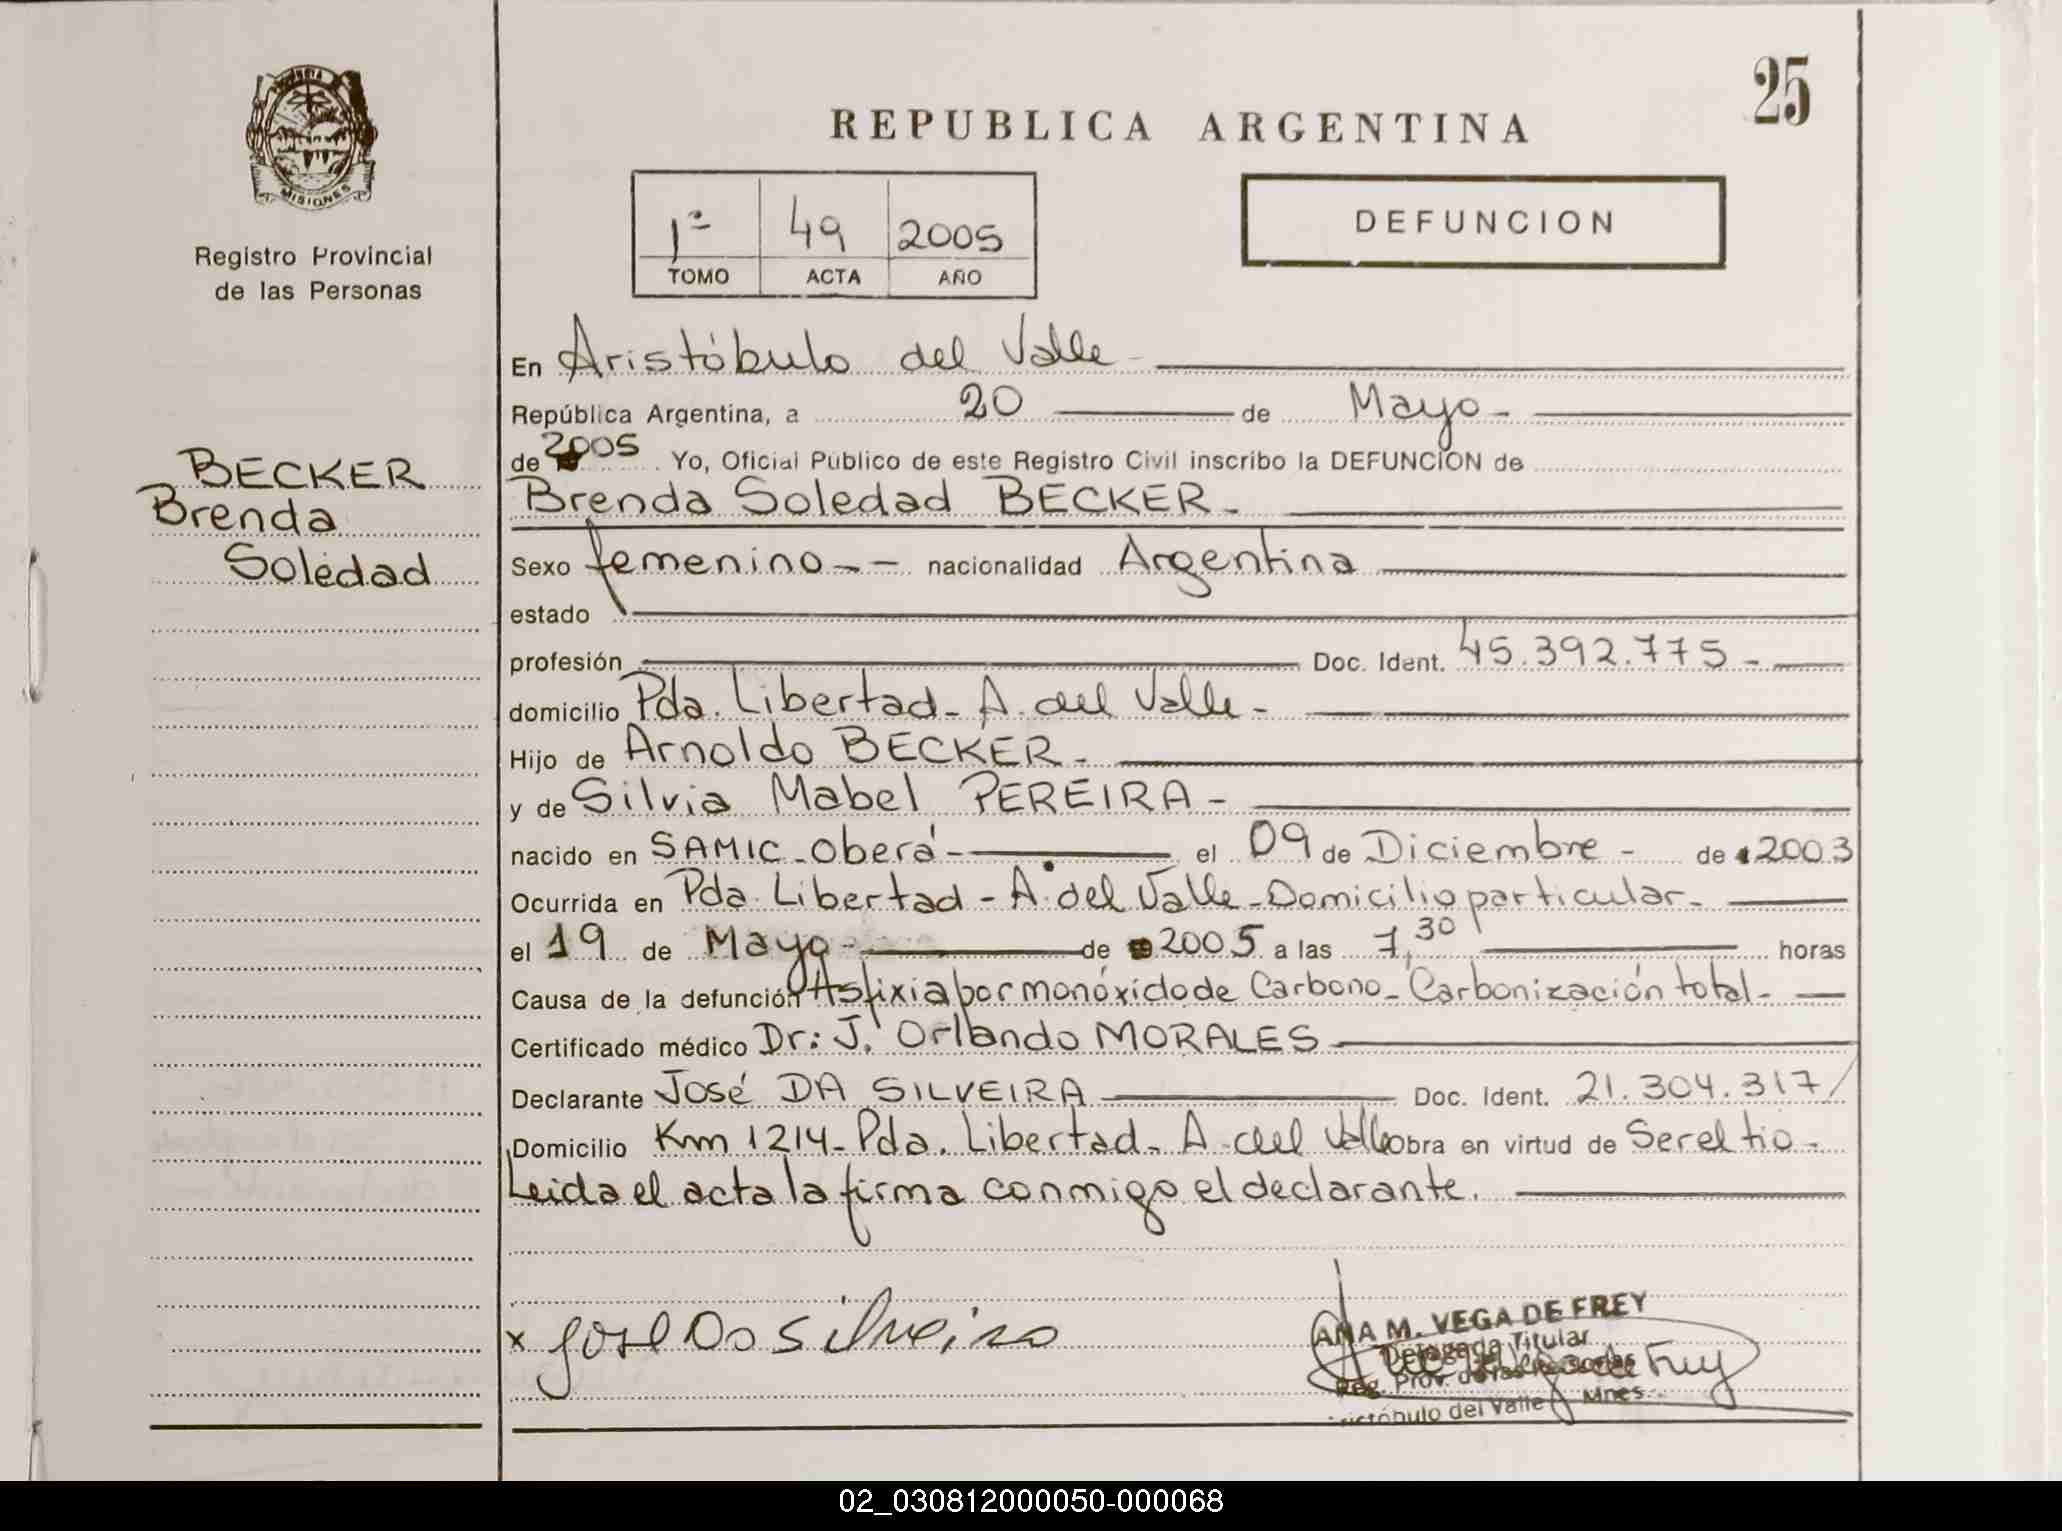 25
REPUBLICA ARGENTINA
MISIONES
Registro Provincial
de las Personas
1ª 49 2005
TOMO ACTA AÑO
DEFUNCION
BECKER
Brenda
Soledad
En Aristóbulo del Valle -
República Argentina, a 20 de Mayo -
de 2005 Yo, Oficial Público de este Registro Civil inscribo la DEFUNCION de
Brenda Soledad BECKER -
Sexo femenino - - nacionalidad Argentina
estado
profesión Doc. Ident. 45.392.775 -
domicilio Pda. Libertad - A. del Valle -
Hijo de Arnoldo BECKER -
y de Silvia Mabel PEREIRA -
nacido en SAMIC - Oberá - el 09 de Diciembre - de 2003
Ocurrida en Pda. Libertad - A. del Valle - Domicilio particular -
el 19 de Mayo - de 2005 a las 7,30 horas
Causa de la defunción Asfixia por monóxido de Carbono - Carbonización total -
Certificado médico Dr: J. Orlando MORALES
Declarante José DA SILVEIRA Doc. Ident. 21.304.317/
Domicilio Km 1214 - Pda. Libertad - A. del Valle obra en virtud de Ser el tío -
Leida el acta la firma conmigo el declarante.
x Jose Da Silveira
ANA M. VEGA DE FREY
Delegada Titular
Reg. Prov. de las Personas
Aristóbulo del Valle Mnes.
02_030812000050-000068